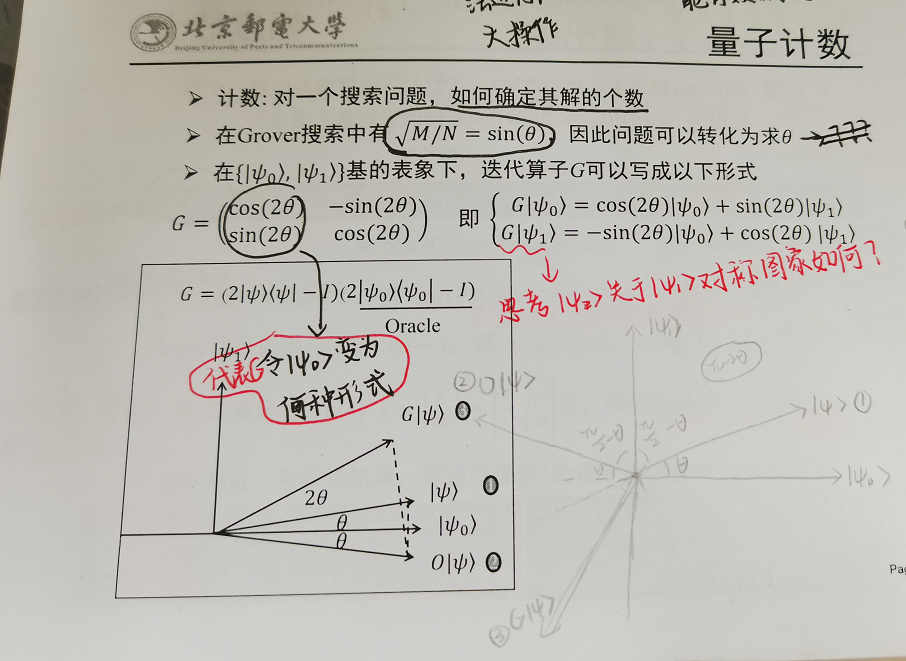 大操作
北京郵電大學
Beijing University of Posts and Telecommunications
量子计数
➢ 计数: 对一个搜索问题，如何确定其解的个数
➢ 在Grover搜索中有√(M/N) = sin(θ)，因此问题可以转化为求θ
➢ 在{|ψ₀⟩, |ψ₁⟩}基的表象下，迭代算子G可以写成以下形式
G = (cos(2θ) −sin(2θ)
sin(2θ) cos(2θ))
即 { G|ψ₀⟩ = cos(2θ)|ψ₀⟩ + sin(2θ)|ψ₁⟩
G|ψ₁⟩ = −sin(2θ)|ψ₀⟩ + cos(2θ) |ψ₁⟩
思考|ψ₂>关于|ψ₁>对称图象如何？
G = (2|ψ⟩⟨ψ| − I)(2|ψ₀⟩⟨ψ₀| − I)
Oracle
|ψ₁⟩
代表G令|ψ₀>变为
何种形式
G|ψ⟩
2θ
|ψ⟩
θ
|ψ₀⟩
θ
O|ψ⟩
|ψ₁>
π-2θ
② O|ψ>
|ψ> ①
π/2-θ
π/2-θ
θ
|ψ₀>
③ G|ψ>